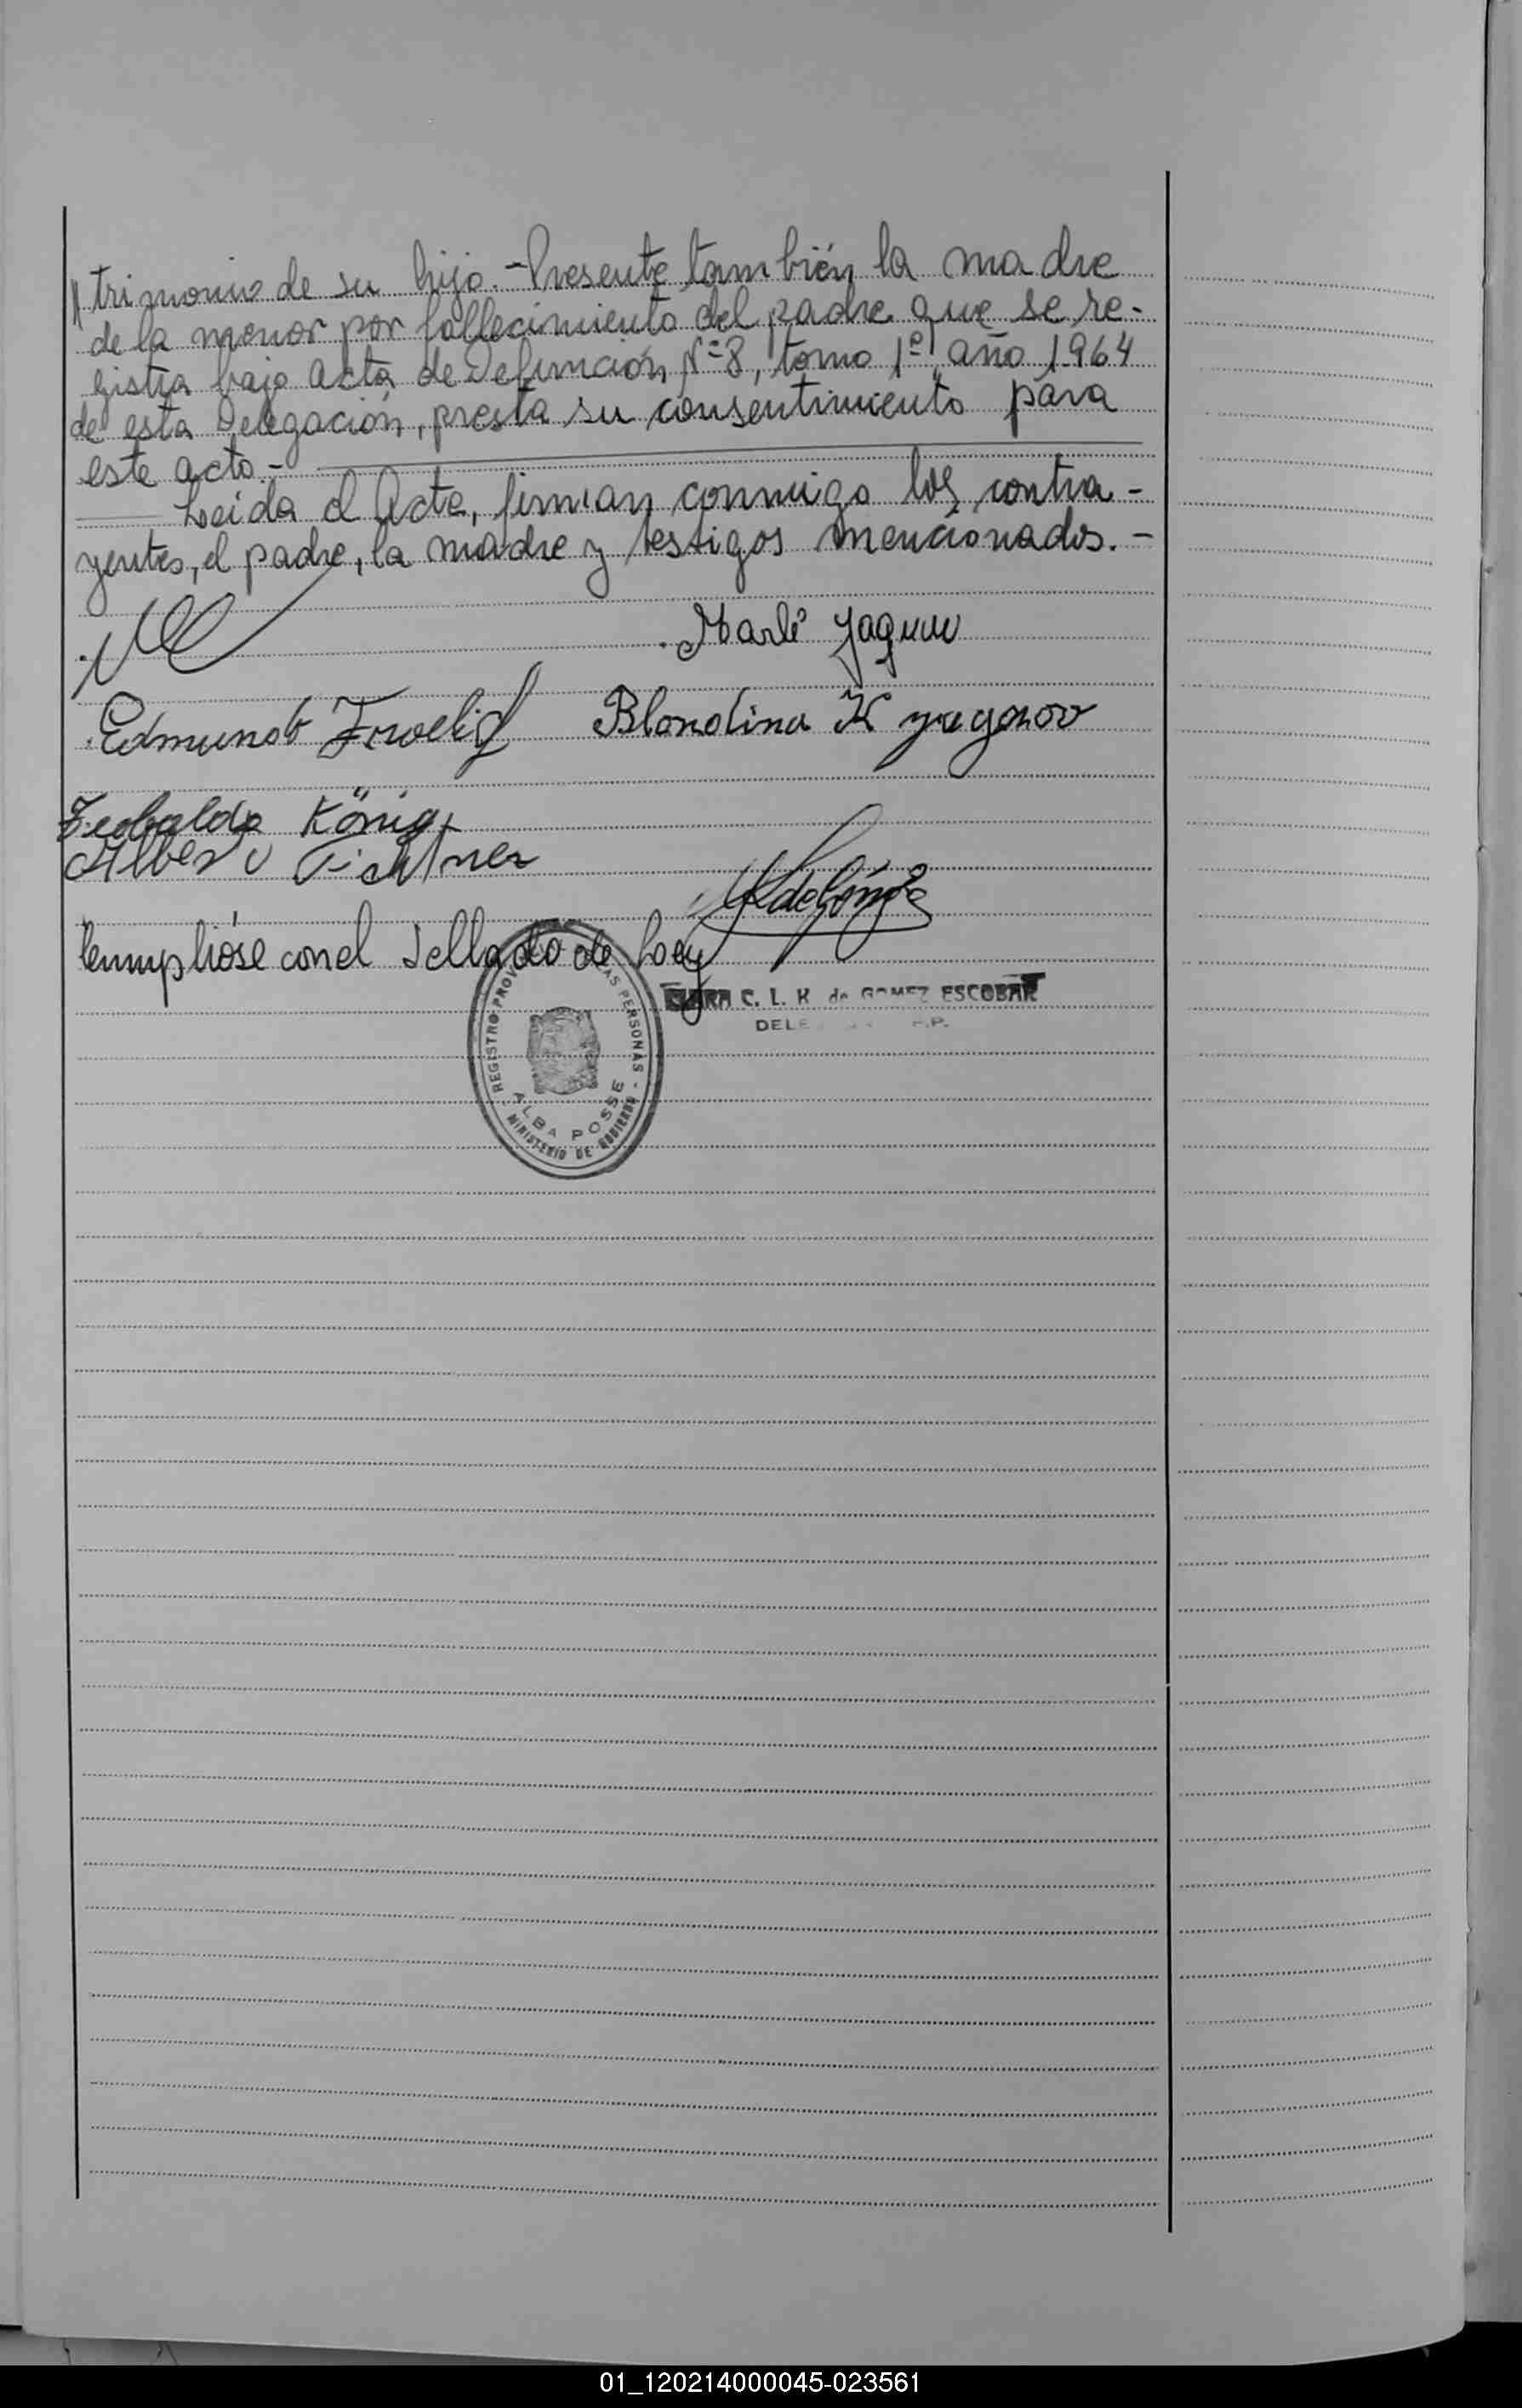 // trimonio de su hijo.- Presente también la madre
de la menor por fallecimiento del padre que se re-
gistra bajo Acta de Defunción Nº 8, tomo 1º, año 1964
de esta Delegación, presta su consentimiento para
este acto.-
Leida el Acta, firman conmigo los contra-
yentes, el padre, la madre y testigos mencionados.-
Marlí Jagnow
Edmundo Froelich Blondina K yagonov
Teobaldo König
Alberto Fichtner
Cumplióse con el Sellado de Ley
C. L. K. de GOMEZ ESCOBAR
REGISTRO PROV AS PERSONAS -
ALBA POSSE
MINISTERIO DE GOBIERNO
01_120214000045-023561